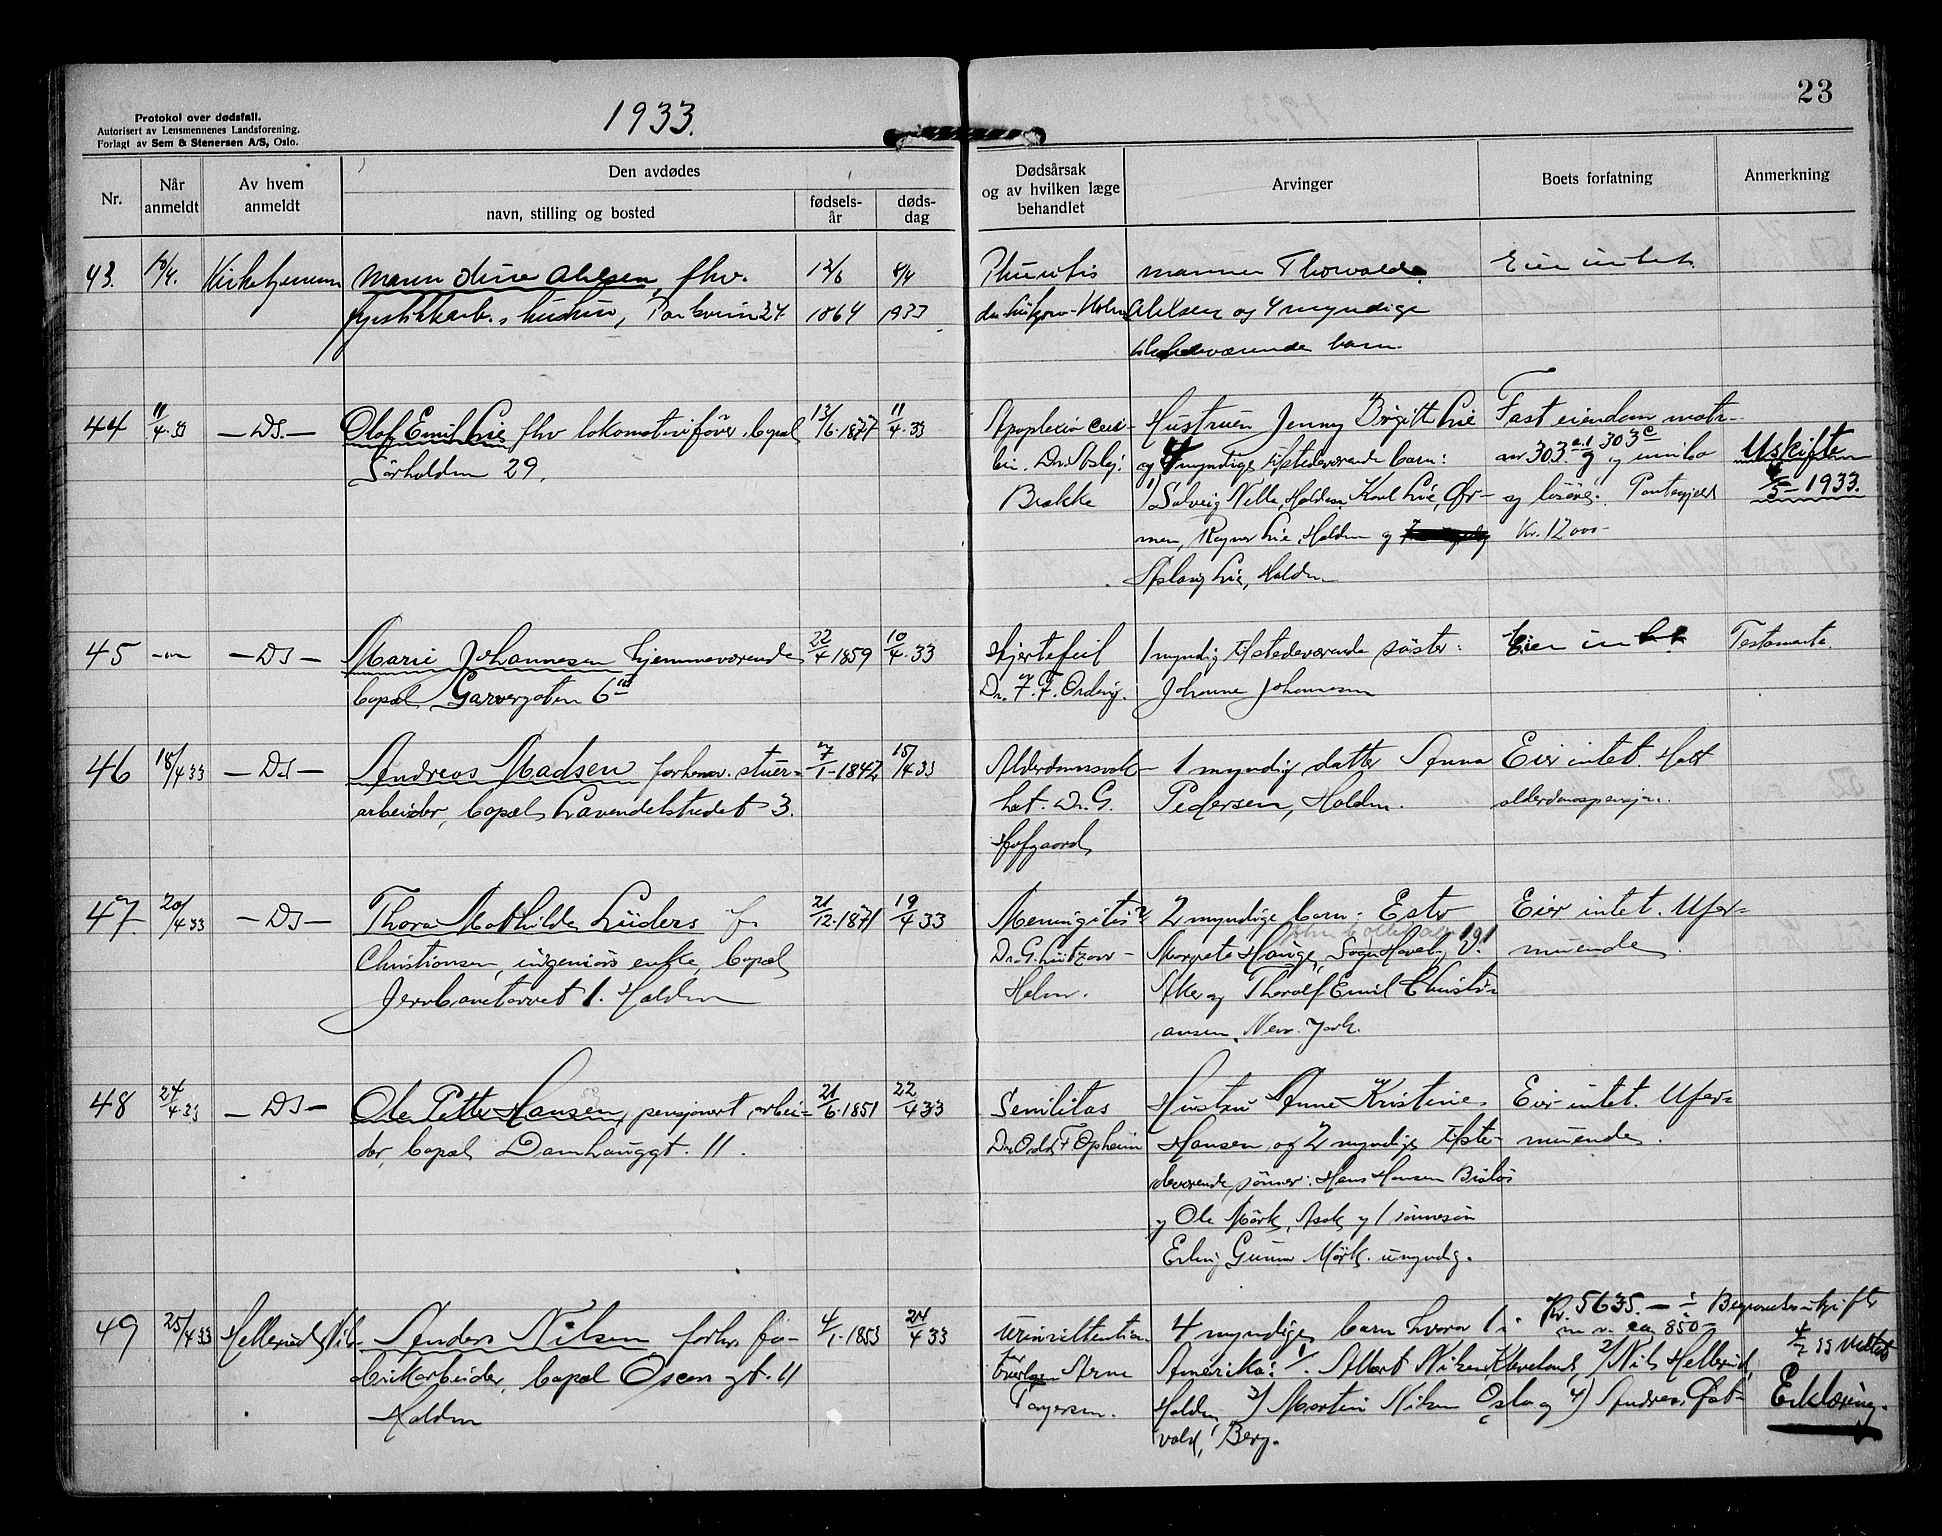 1933.
23
Protokol over dødsfall.
Autorisert av Lensmennenes Landsforening.
Forlagt av Sem & Stenersen A/S, Oslo.
Nr.
Når anmeldt
Av hvem anmeldt
Den avdødes
navn, stilling og bosted
fødselsår
dødsdag
Dødsårsak
og av hvilken læge
behandlet
Arvinger
Boets forfatning
Anmerkning
43. 10/4. 12/8 8/4 mannen Thorvald Eier intet
1864 1933 Ahlsen og 4 myndige
tilstedeværende barn.
44 11/4.33 —DS.— Olaf Emil Lie fhv lokomotivfører, bopæl 13/6.1877 11/4.33 Apoplexia cere- Hustruen Jenny Birgitte Lie Fast eiendom matr.
Sørhalden 29. bri. Dr. og 4 myndige tilstedeværende barn: nr 303 og 303c og innbo Uskifte
Brække 1) Solveig Halden, Karl Lie, Ør- og løsøre. Pantegjeld 5-1933.
men, Ragnar Lie, Halden og Kr. 12000-
Aslaug Lie, Halden
45 —DS— Marie Johannesen hjemmeværende 22/4 1859 10/4.33 Hjertefeil 1 myndig tilstedeværende søster: Eier intet Testamente.
bopæl Garvergaten 6 Dr. F. F. Ording. Johanne Johannesen
46 18/4 33 —DS— Andreas Madsen forhenv. stuer- 7/1-1842 15/4 33 Alderdomssvak- 1 myndig datter Anna Eier intet. Hatt
arbeider, bopæl Lavendelstredet 3. het. Dr. G. Pedersen, Halden. alderdomspensjon.
Hofgaard
47 20/4 33 —DS— Thora Mathilde Lüders f. 21/12.1871 19/4 33 Meningitis? 2 myndige barn: Ester Eier intet. Ufor-
Christiansen, ingeniørs enke, bopæl Dr. G. Lützow- Margrete Hauge, Sogn Haveby muende.
Jernbanetorvet 1. Halden Holm. Aker og Thoralf Emil Christi-
ansen, New-York.
48 24/4.33 —DS— Ole Petter Hansen, pensjonert arbei- 21/6.1851 22/4 33 Senilitas Hustru Anne Kristine Eier intet. Ufor-
der, bopæl Damhauggt. 11. Dr. Odd F Opheim Hansen og 2 myndige tilste- muende.
deværende sønner: Hans Hansen
og Ole Mørk, Asak og 1 sønnesøn
Erling Gunnar Mørk. umyndig.
49 25/4 33 Hellerud Nils Anders Nilsen, forhv. fa- 4/1-1853 24/4 33 Urinretention 4 myndige barn hvorav 1 i Kr. 5635.— ÷ Begravelsesutgifter
ca 850-
brikarbeider, bopæl Oscarsgt. 11 Arne Amerika: 1/. Albert Nilsen, Kleveland, 2) Nils Hellerud,
Halden Torgersen. Halden, 3) Martin Nilsen Oslo og 4) Andreas Øst- Erklæring.
vold, Berg.